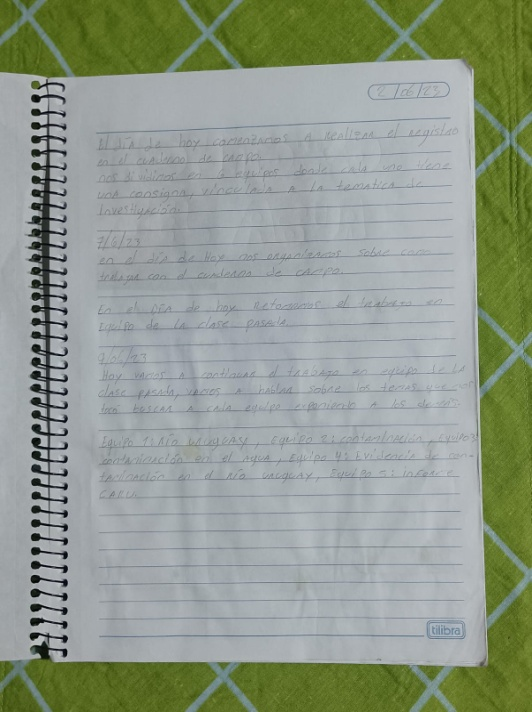 2/06/23
El día de hoy comenzamos a realizar el registro
en el cuaderno de campo.
nos dividimos en 5 equipos donde cada uno tiene
una consigna, vinculada a la tematica de
investigación.
7/6/23
en el día de hoy nos organizamos sobre como
trabajar con el cuaderno de campo.
En el DÍA de hoy Retomamos el trabajo en
Equipo de la clase pasada.
9/06/23
Hoy vamos a continuar el trabajo en equipo de la
clase pasada, vamos a hablar sobre los temas que nos
buscar a cada equipo a los demás.
Equipo 1: Río Uruguay, Equipo 2: contaminación, Equipo 3:
contaminación en el agua, Equipo 4: Evidencia de con-
taminación en el Río Uruguay, Equipo 5: informe
CARU.
tilibra